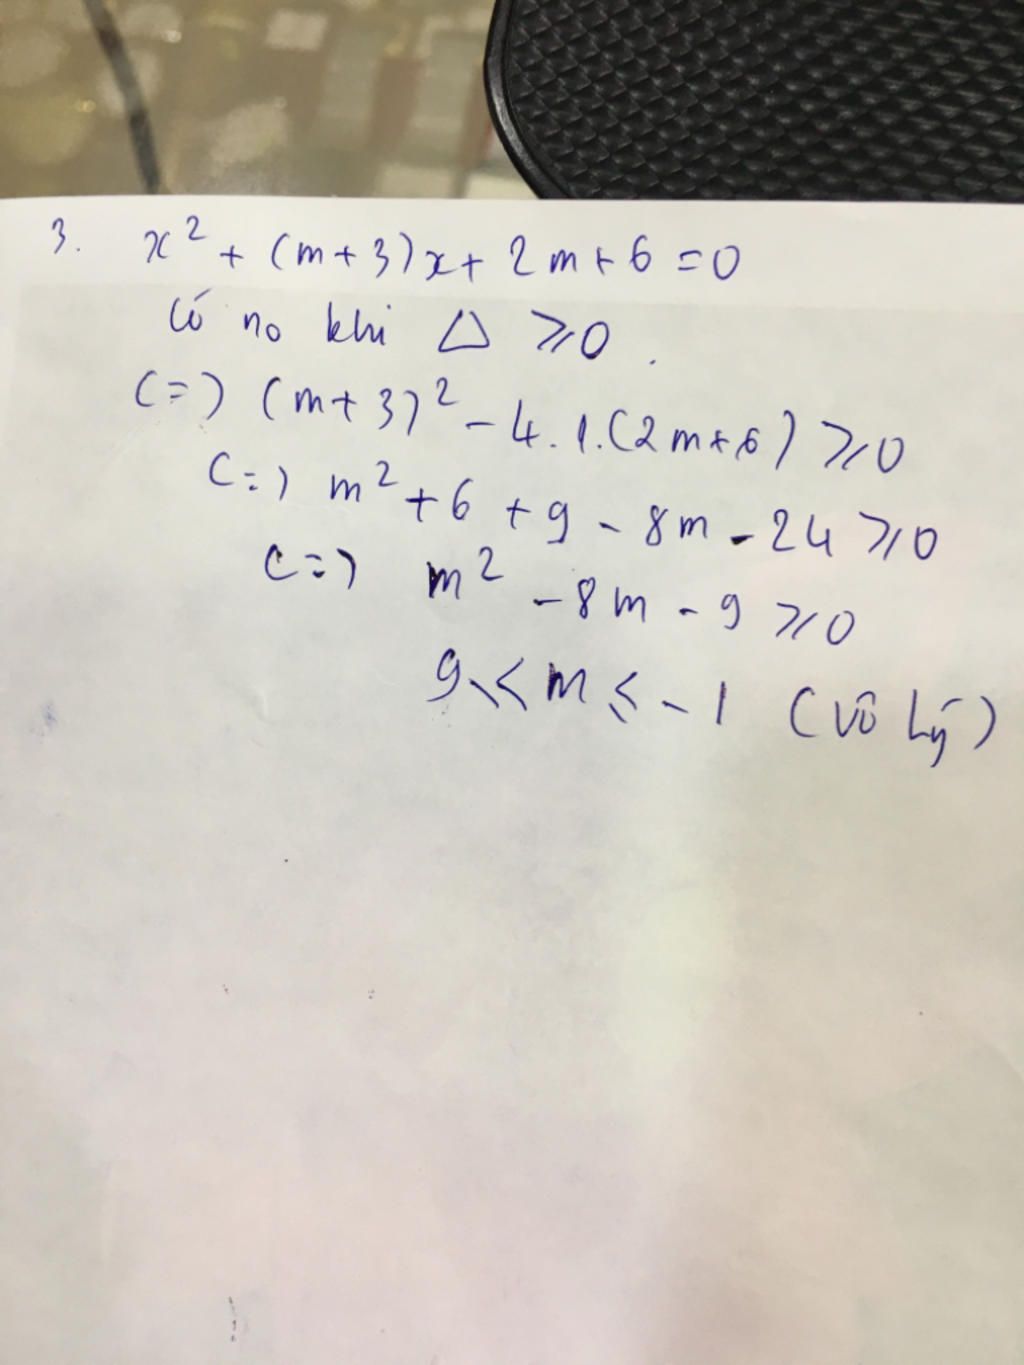 3. x² + (m+3)x + 2m+6 = 0
Có no khi △ ⩾ 0.
(=) (m+3)² - 4.1.(2m+6) ⩾ 0
(=) m² + 6 + 9 - 8m - 24 ⩾ 0
(=) m² - 8m - 9 ⩾ 0
9 ⩽ m ⩽ -1 (Vô lý)